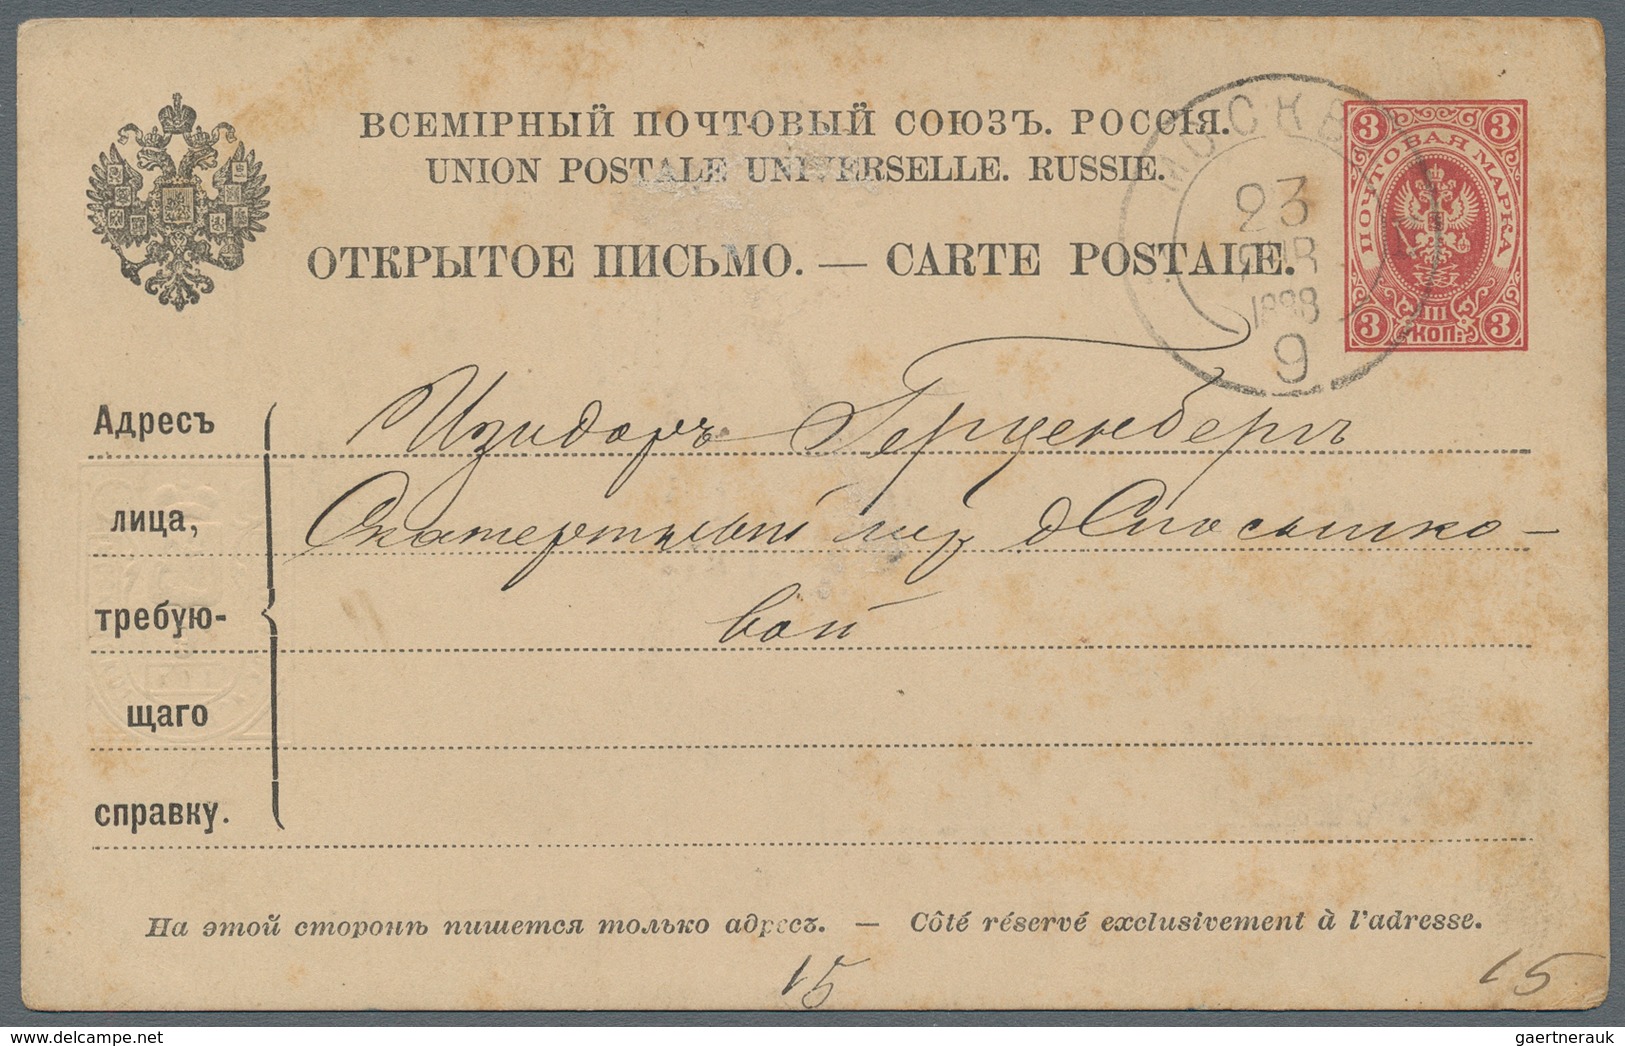 ВСЕМІРНЫЙ ПОЧТОВЫЙ СОЮЗЪ. РОССІЯ.
UNION POSTALE UNIVERSELLE. RUSSIE.
ОТКРЫТОЕ ПИСЬМО. — CARTE POSTALE.
МОСКВА
23
1898
9
3 3
ПОЧТОВАЯ МАРКА
3 КОП. 3
Адресъ
лица,
требую-
щаго
справку.
Изидоръ Герценбергъ
Скатертный
вой
На этой сторонѣ пишется только адресъ. — Côté réservé exclusivement à l'adresse.
15
15
gaertnerauk @ delcampe.net